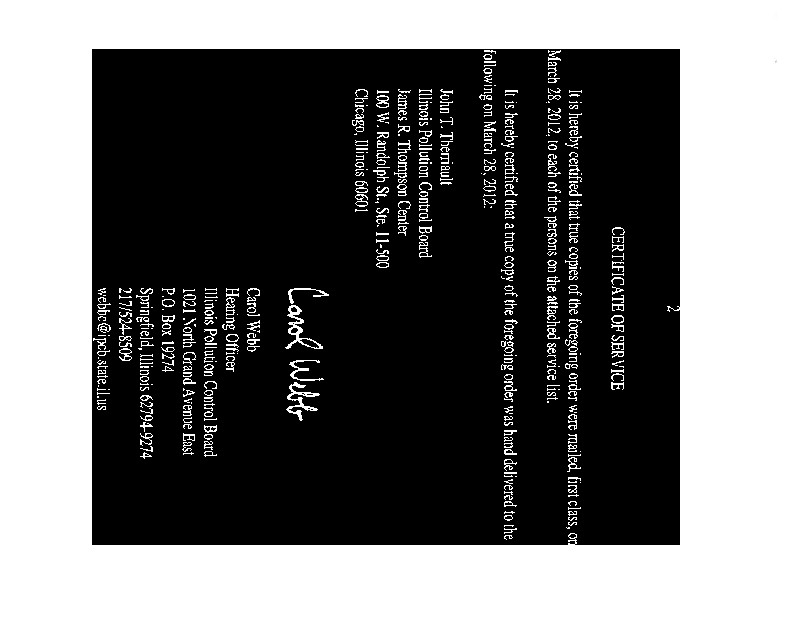 2
CERTIFICATE OF SERVICE
It is hereby certified that true copies of the foregoing order were mailed, first class, on
March 28, 2012, to each of the persons on the attached service list.
It is hereby certified that a true copy of the foregoing order was hand delivered to the
following on March 28, 2012:
John T. Therriault
Illinois Pollution Control Board
James R. Thompson Center
100 W. Randolph St., Ste. 11-500
Chicago, Illinois 60601
Carol Webb
Carol Webb
Hearing Officer
Illinois Pollution Control Board
1021 North Grand Avenue East
P.O. Box 19274
Springfield, Illinois 62794-9274
217/524-8509
webbc@ipcb.state.il.us